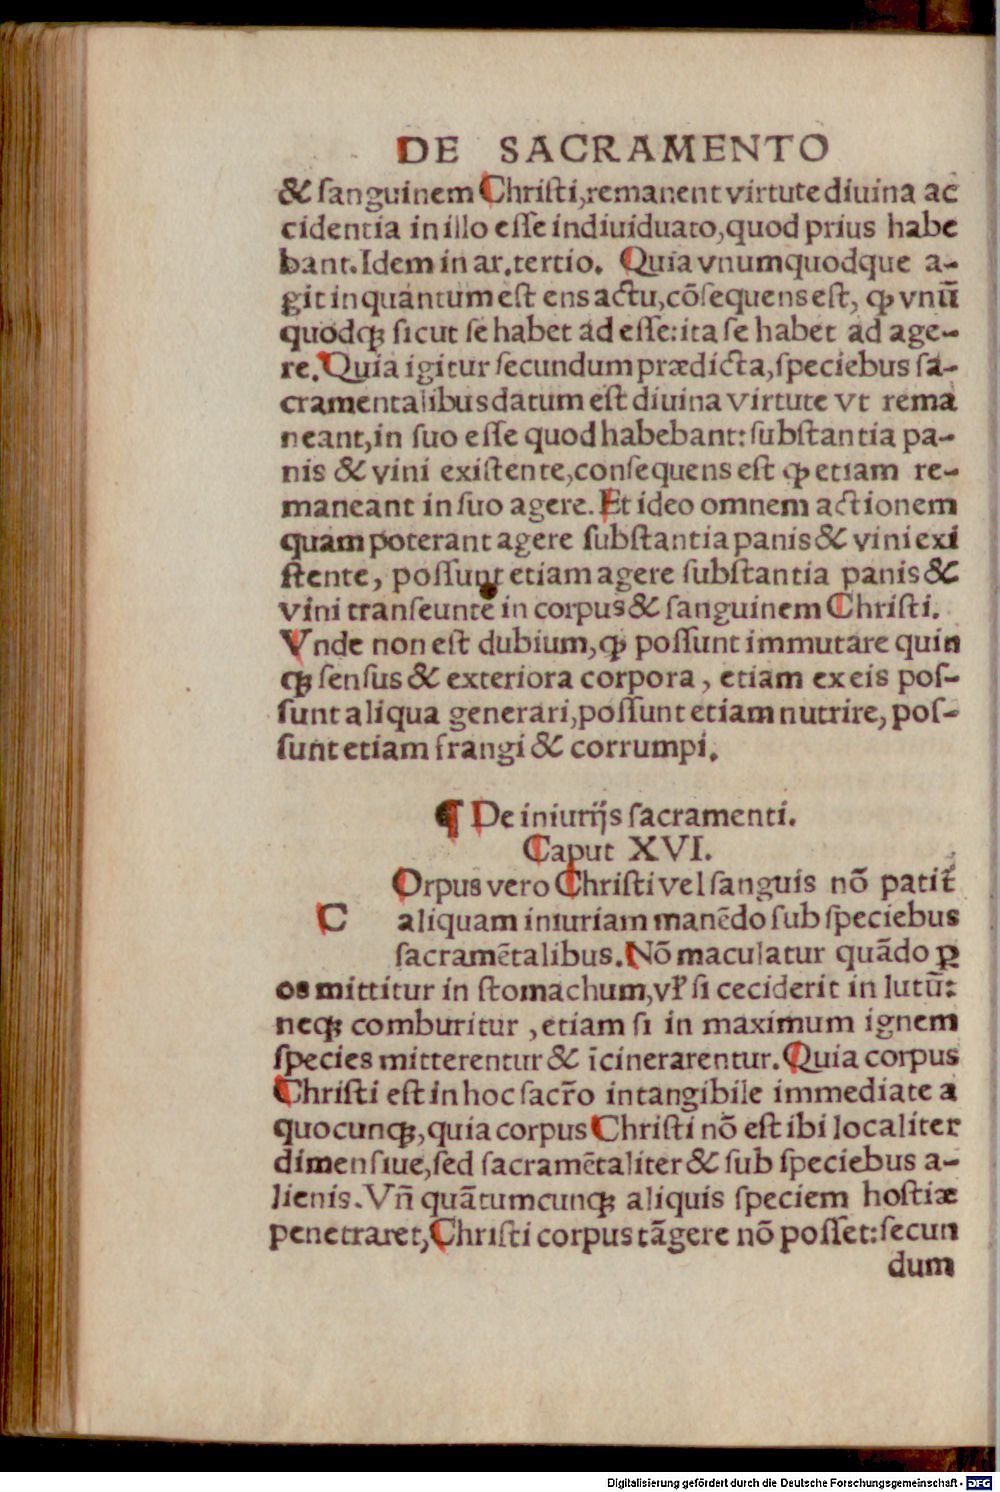 DE SACRAMENTO
& ſanguinem Chriſti, remanent virtute diuina ac
cidentia in illo eſſe indiuiduato, quod prius habe
bant. Idem in ar. tertio. Quia vnumquodque a-
git inquantum eſt ens actu, cõſequens eſt, ꝙ vnũ
quodqꝫ ſicut ſe habet ad eſſe: ita ſe habet ad age-
re. Quia igitur ſecundum prædicta, ſpeciebus ſa-
cramentalibus datum eſt diuina virtute vt rema
neant, in ſuo eſſe quod habebant: ſubſtantia pa-
nis & vini exiſtente, conſequens eſt ꝙ etiam re-
maneant in ſuo agere. Et ideo omnem actionem
quam poterant agere ſubſtantia panis & vini exi
ſtente, poſſunt etiam agere ſubſtantia panis &
vini tranſeunte in corpus & ſanguinem Chriſti.
Vnde non eſt dubium, ꝙ poſſunt immutare quin
qꝫ ſenſus & exteriora corpora, etiam ex eis poſ-
ſunt aliqua generari, poſſunt etiam nutrire, poſ-
ſunt etiam frangi & corrumpi.
¶ De iniurijs ſacramenti.
Caput XVI.
Orpus vero Chriſti vel ſanguis nõ patit᷑
C aliquam iniuriam manẽdo ſub ſpeciebus
ſacramẽtalibus. Nõ maculatur quãdo ꝑ
os mittitur in ſtomachum, vꝉ ſi ceciderit in lutũ:
neqꝫ comburitur, etiam ſi in maximum ignem
ſpecies mitterentur & ĩcinerarentur. Quia corpus
Chriſti eſt in hoc ſacr̃o intangibile immediate a
quocunqꝫ, quia corpus Chriſti nõ eſt ibi localiter
dimenſiue, ſed ſacramẽtaliter & ſub ſpeciebus a-
lienis. Vñ quãtumcunqꝫ aliquis ſpeciem hoſtiæ
penetraret, Chriſti corpus tãgere nõ poſſet: ſecun
dum
Digitalisierung gefördert durch die Deutsche Forschungsgemeinschaft - DFG